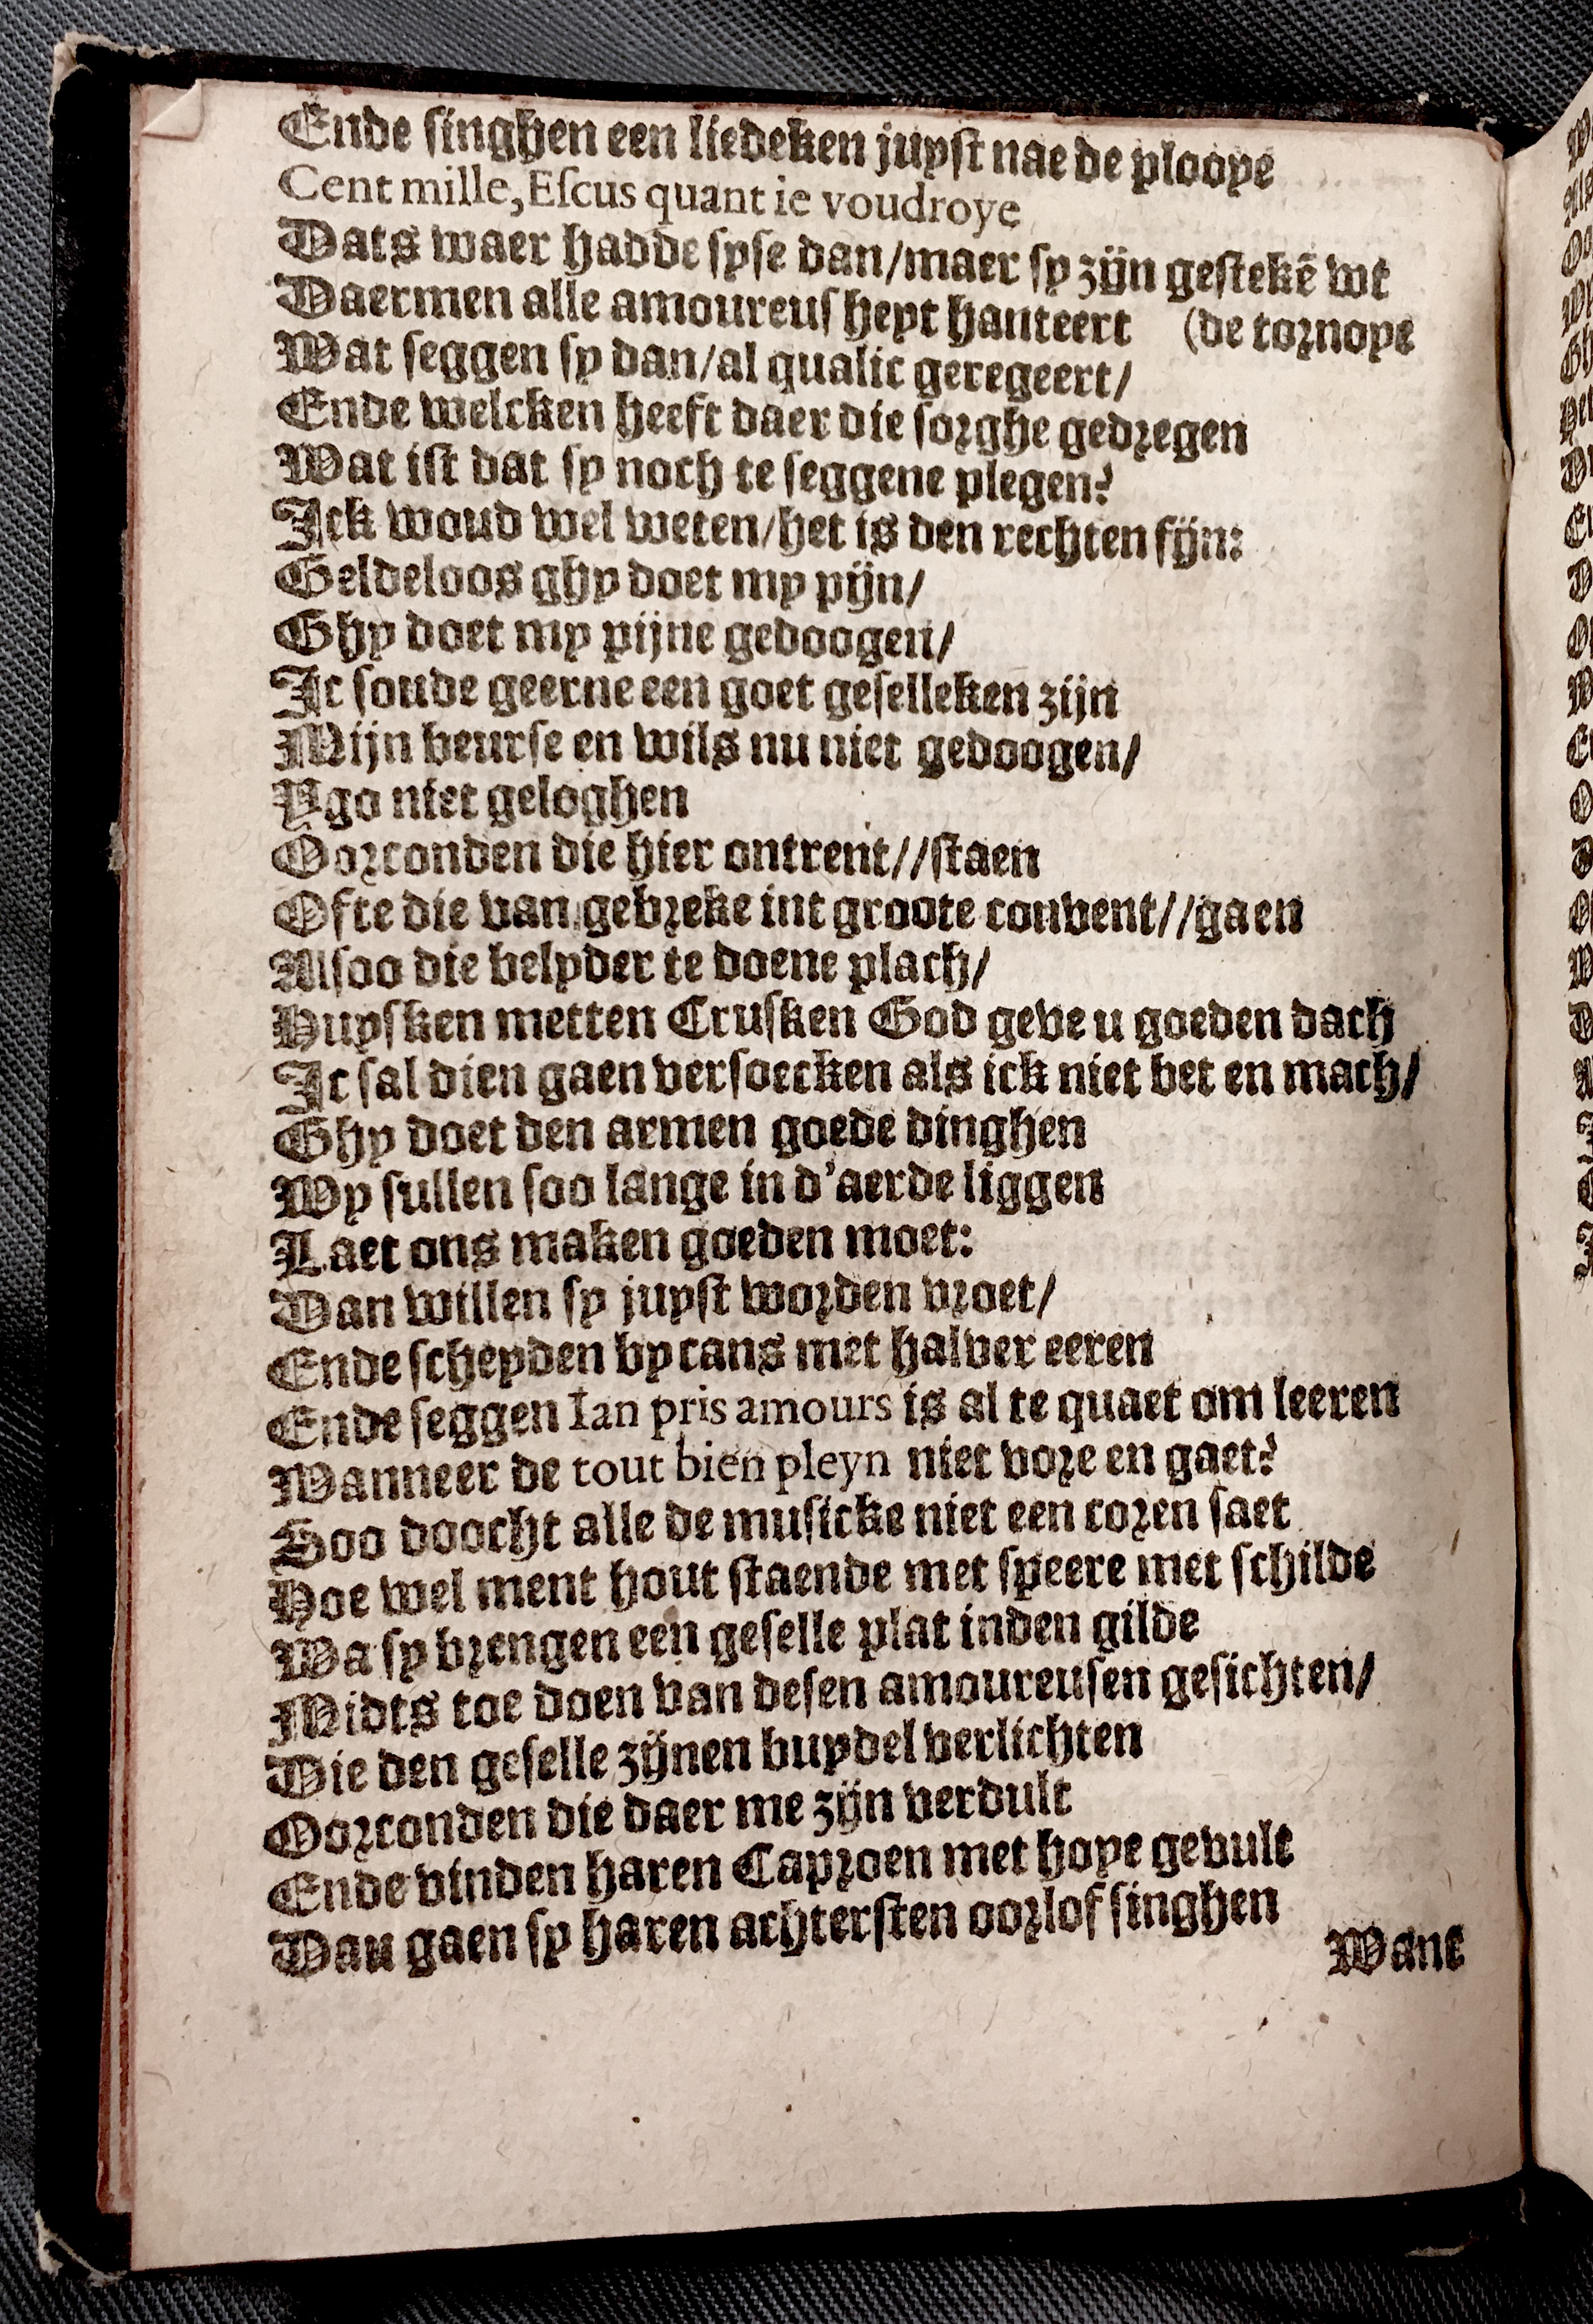 Ende singhen een liedeken juyst nae de plooye
Cent mille, Eſcus quant ie voudroye
Dats waer hadde syse dan/maer sy zijn gestekē wt
Daermen alle amoureus heyt hanteert (de tornoye
Wat seggen sy dan/al qualic geregeert/
Ende welcken heeft daer die sorghe gedregen
Wat ist dat sy noch te seggene plegen?
Ick woud wel weten/het is den rechten fijn:
Geldeloos ghy doet my pijn/
Ghy doet my pijne gedoogen/
Ic soude geerne een goet geselleken zijn
Mijn beurse en wils nu niet gedoogen/
Ygo niet geloghen
Oorconden die hier ontrent//staen
Ofte die van gebreke int groote convent//gaen
Alsoo die belyder te doene plach/
Huysken metten Crusken God geve u goeden dach
Ic sal dien gaen versoecken als ick niet bet en mach/
Ghy doet den armen goede dinghen
Wy sullen soo lange in d'aerde liggen
Laet ons maken goeden moet:
Dan willen sy juyst worden vroet/
Ende scheyden by cans met halver eeren
Ende seggen Ian pris amours is al te quaet om leeren
Wanneer de tout bien pleyn niet vore en gaet?
Soo doocht alle de musicke niet een coren saet
Hoe wel ment hout staende met speere met schilde
Wa sy brengen een geselle plat inden gilde
Midts toe doen van desen amoureusen gesichten/
Die den geselle zijnen buydel verlichten
Oorconden die daer me zijn verdult
Ende vinden haren Caproen met hoye gevult
Dau gaen sy haren achtersten oorlof singhen
Wane